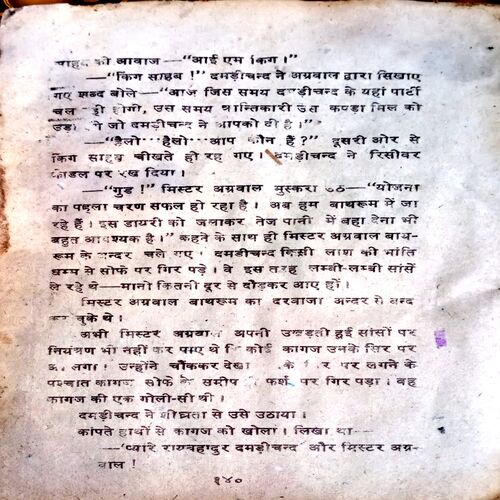 साहब की आवाज—“आई एम किंग।”
—“किंग साहब!” दमड़ीचन्द ने अग्रवाल द्वारा सिखाए
गए शब्द बोले—“आज जिस समय दमड़ीचन्द के यहां पार्टी
चल रही होगी, उस समय क्रान्तिकारी उस कपड़ा मिल को
जो दमड़ीचन्द ने आपको दी है।”
—“हैलो हैलो आप कौन हैं?” दूसरी ओर से
किंग साहब चीखते हो रह गए। दमड़ीचन्द ने रिसीवर
क्राडल पर रख दिया।
—“गुड!” मिस्टर अग्रवाल मुस्करा उठे—“योजना
का पहला चरण सफल हो रहा है। अब हम बाथरूम में जा
रहे हैं। इस डायरी को जलाकर तेज पानी में बहा देना भी
बहुत आवश्यक है।” कहने के साथ ही मिस्टर अग्रवाल बाथ-
रूम के अन्दर चले गए। दमड़ीचन्द किसी लाश की भांति
धम्म से सोफे पर गिर पड़े। वे इस तरह लम्बी-लम्बी सांसें
ले रहे थे—मानो कितनी दूर से दौड़कर आए हों।
मिस्टर अग्रवाल बाथरूम का दरवाजा अन्दर से बन्द
कर चुके थे।
अभी मिस्टर अग्रवाल अपनी उखड़ती हुई सांसों पर
नियंत्रण भी नहीं कर पाए थे कि कोई कागज उनके सिर पर
आ लगा। उन्होंने चौंककर देखा के सिर पर लगने के
पश्चात कागज सोफे के समीप फर्श पर गिर पड़ा। वह
कागज की एक गोली-सी थी।
दमड़ीचन्द ने शीघ्रता से उसे उठाया।
कांपते हाथों से कागज को खोला। लिखा था—
—‘प्यारे रायबहादुर दमड़ीचन्द और मिस्टर अग्र-
वाल!
१४०